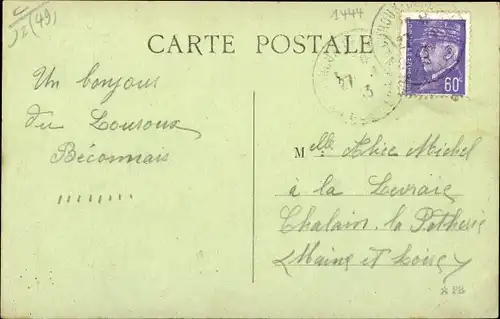 (49)
1444
CARTE POSTALE
60c
Un bonjour
du Louroux
Béconnais
Melle Alice Michel
à la Levraie
Chalain la Potherie
(Maine et Loire)